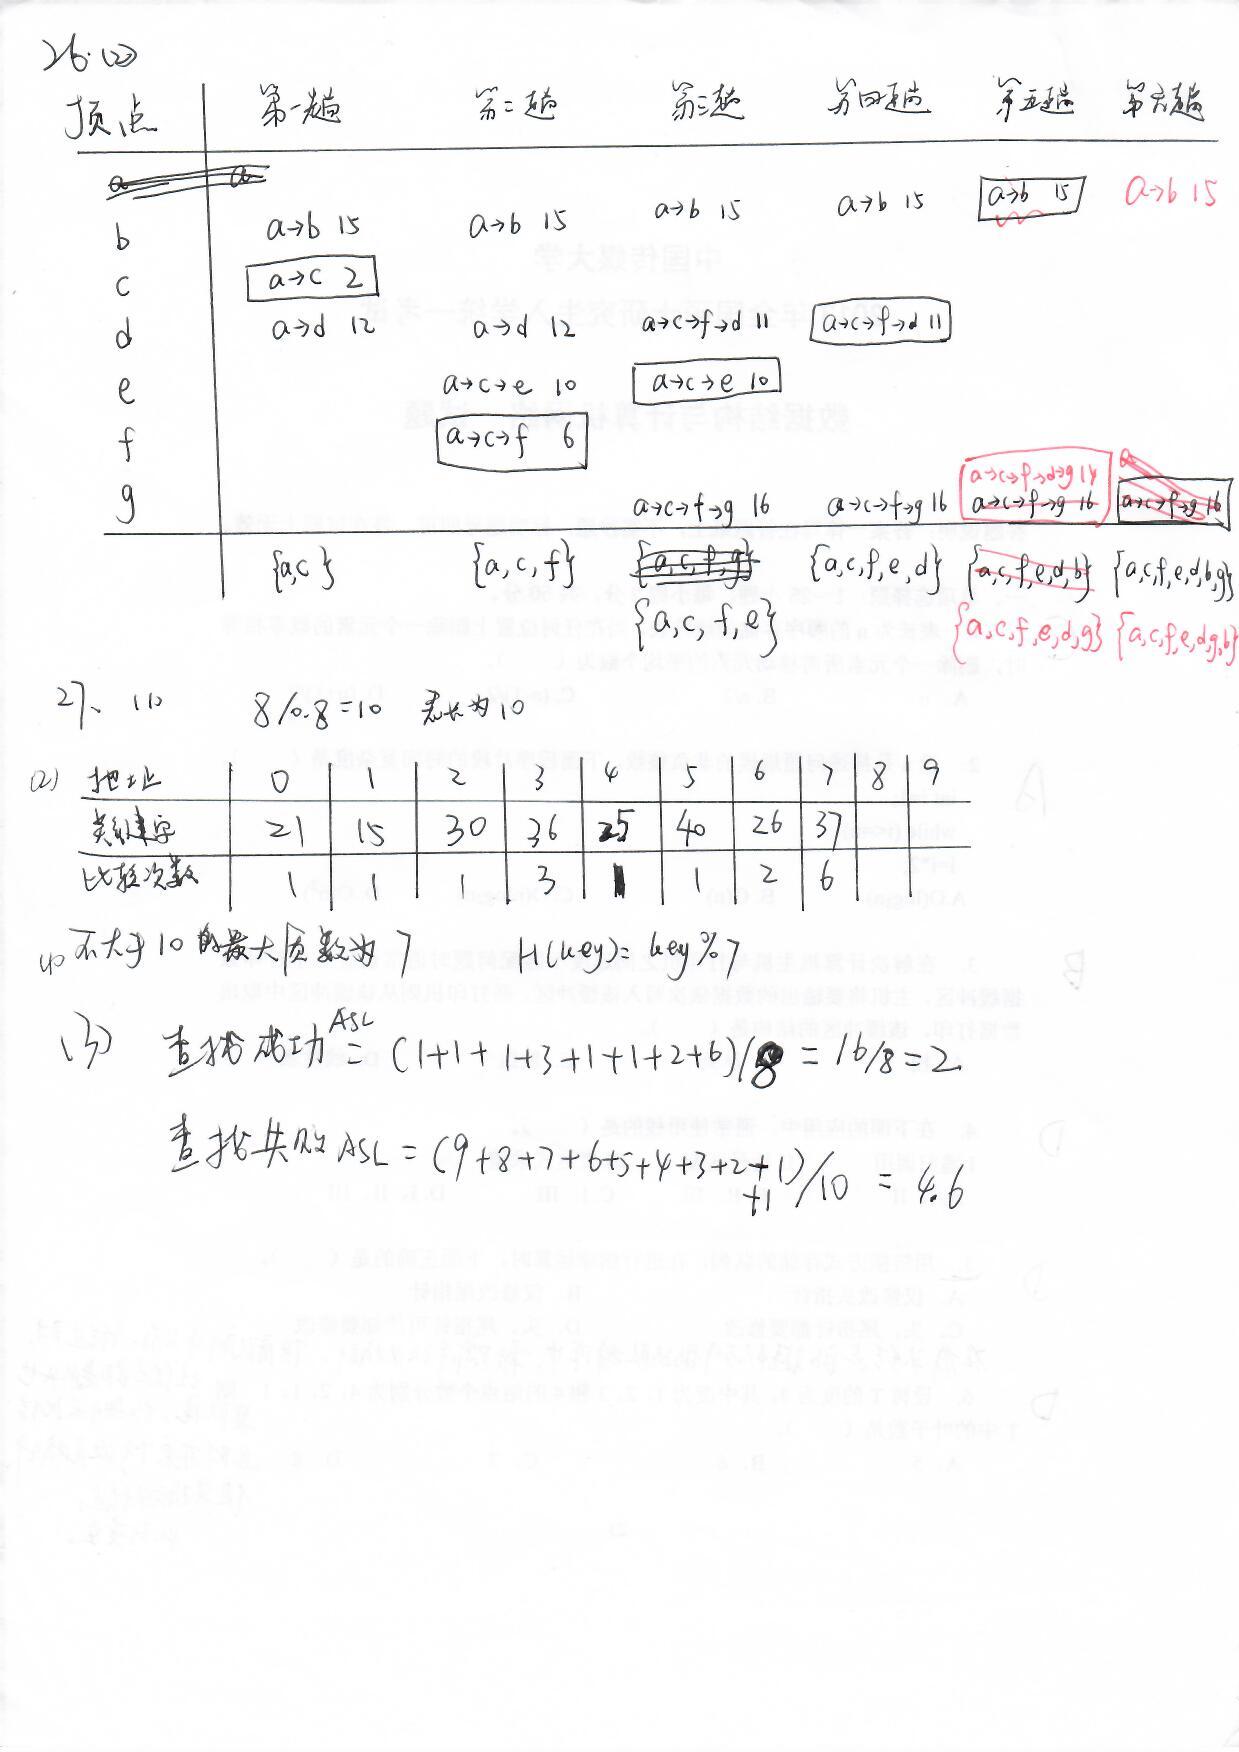 26.(2)
顶点 第一趟 第二趟 第三趟 第四趟 第五趟 第六趟
a a
b a→b 15 a→b 15 a→b 15 a→b 15 a→b 15 a→b 15
c a→c 2
d a→d 12 a→d 12 a→c→f→d 11 a→c→f→d 11
e a→c→e 10 a→c→e 10
f a→c→f 6
a→c→f→d→g 14
g a→c→f→g 16 a→c→f→g 16 a→c→f→g 16 a→c→f→g 16
{a,c} {a,c,f} {a,c,f,g} {a,c,f,e,d} {a,c,f,e,d,b} {a,c,f,e,d,b,g}
{a,c,f,e} {a,c,f,e,d,g} {a,c,f,e,d,g,b}
27、(1) 8/0.8=10 表长为10
(2) 地址 0 1 2 3 4 5 6 7 8 9
关键字 21 15 30 36 25 40 26 37
比较次数 1 1 1 3 1 1 2 6
(1) 不大于10的最大质数为7 H(key)=key%7
(3) 查找成功ASL=(1+1+1+3+1+1+2+6)/8=16/8=2
查找失败ASL=(9+8+7+6+5+4+3+2+1+1)/10=4.6